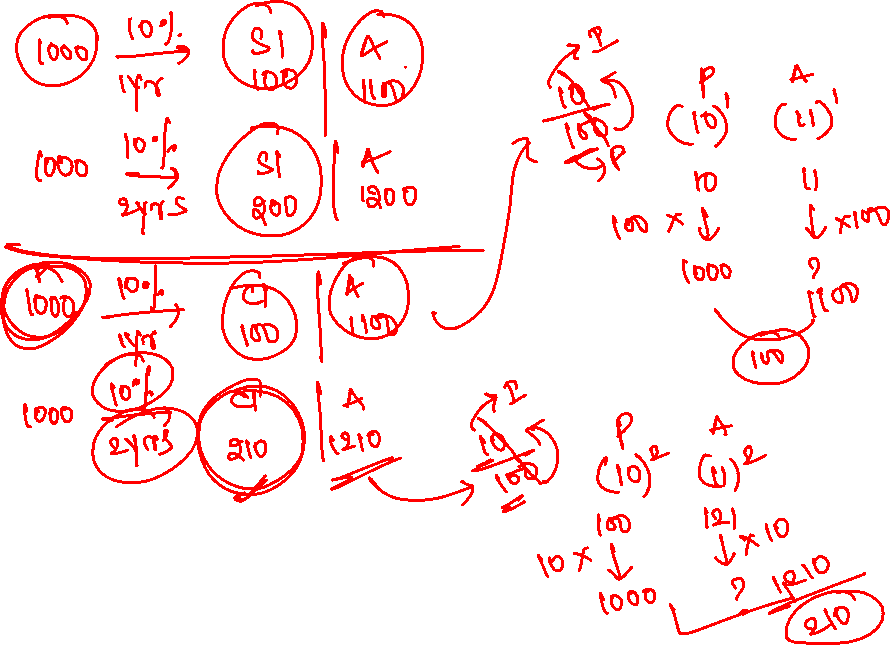 1000 10% 1yr SI 100 A 1100
1000 10% 2yrs SI 200 A 1200
P 1000 10% 1yr CI 100 A 1100
1000 10% 2yrs CI 210 A 1210
10/100 I P
P A
(10)¹ (11)¹
10 11
100 × ↓ ↓ ×100
1000 ? 1100
100
10/100 I
P A
(10)² (11)²
100 121
10 × ↓ ↓ ×10
1000 ? 1210
210